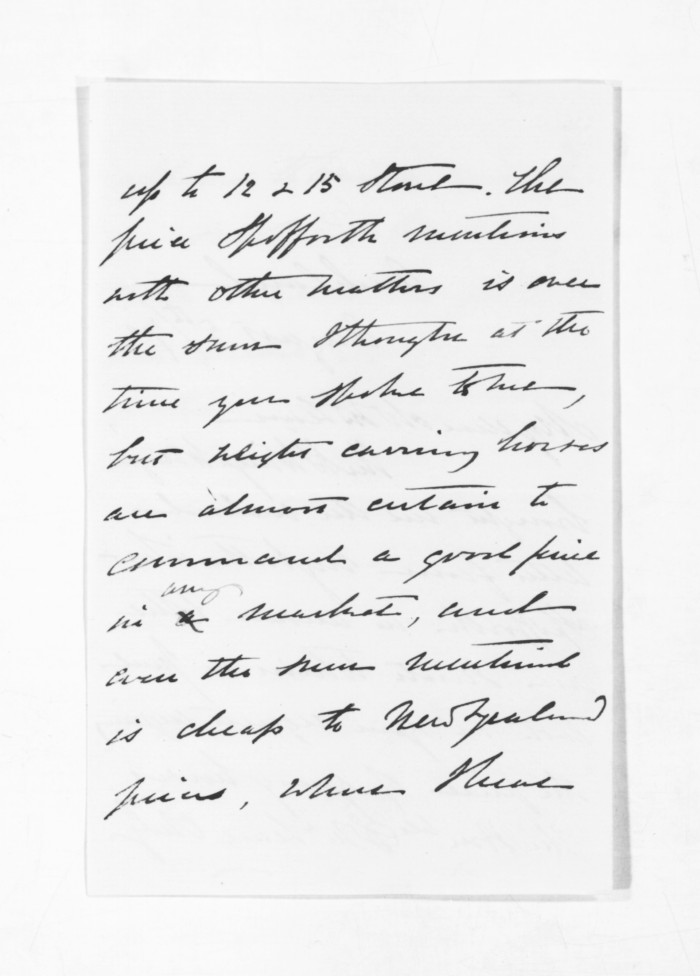 up to 12 & 15 Stone. The
price Spofforth mentions
with other matters is over
the sum I thought at the
time you spoke to me,
but weight carrying horses
are almost certain to
command a good price
any
in a market, and
even the sum mentioned
is cheap to New Zealand
prices, where I have